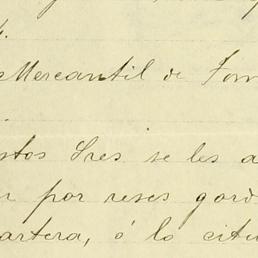 Mercantil de
stos Sres se les a
por reses gord
artera, ó lo